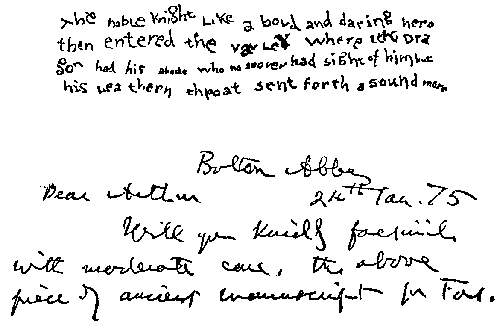 The noble Knight Like a bould and daring hero
then entered the valley where the Dra
gon had his abode who no sooner had sight of him but
his leathern throat sent forth a sound more
Bolton Abbey
24th Jan. 75
Dear Arthur
Will you kindly facsimile
with moderate care, the above
piece of ancient manuscript for